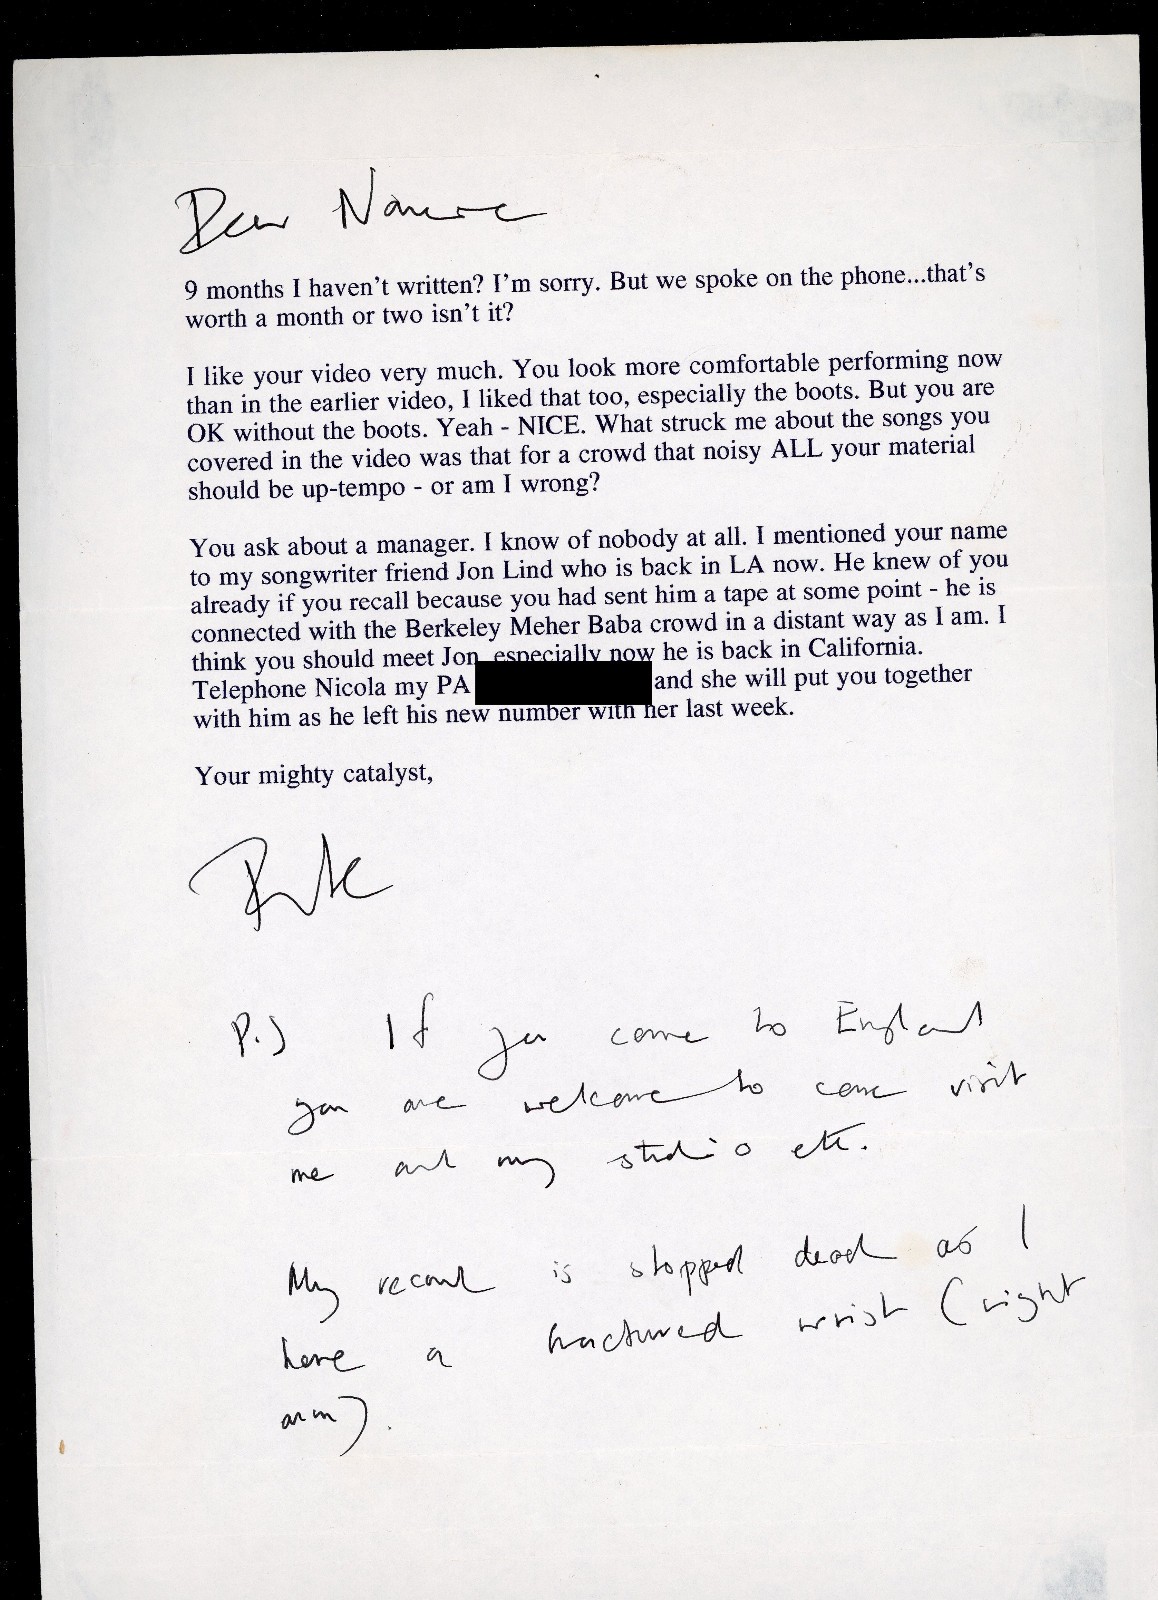 Dear
9 months I haven't written? I'm sorry. But we spoke on the phone...that's
worth a month or two isn't it?
I like your video very much. You look more comfortable performing now
than in the earlier video, I liked that too, especially the boots. But you are
OK without the boots. Yeah - NICE. What struck me about the songs you
covered in the video was that for a crowd that noisy ALL your material
should be up-tempo - or am I wrong?
You ask about a manager. I know of nobody at all. I mentioned your name
to my songwriter friend Jon Lind who is back in LA now. He knew of you
already if you recall because you had sent him a tape at some point - he is
connected with the Berkeley Meher Baba crowd in a distant way as I am. I
think you should meet Jon, especially now he is back in California.
Telephone Nicola my PA and she will put you together
with him as he left his new number with her last week.
Your mighty catalyst,
Pete
P.S If you come to England
you are welcome to come visit
me and my studio etc.
My record is stopped dead as I
have a fractured wrist (right
arm).